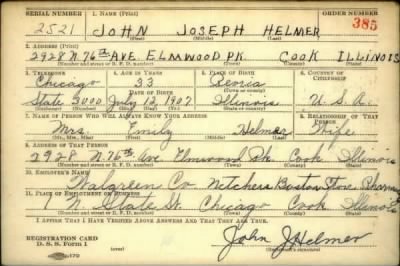 SERIAL NUMBER 1. NAME (Print) ORDER NUMBER
2521 JOHN JOSEPH HELMER 385
(First) (Middle) (Last)
2. ADDRESS (Print)
2928 N 76th AVE ELMWOOD PK COOK ILLINOIS
(Number and street or R. F. D. number) (Town) (County) (State)
3. TELEPHONE 4. AGE IN YEARS 5. PLACE OF BIRTH 6. COUNTRY OF CITIZENSHIP
Chicago 33 Peoria
(Town)
State 3000 July 12, 1907 Illinois U.S.A.
7. NAME OF PERSON WHO WILL ALWAYS KNOW YOUR ADDRESS 8. RELATIONSHIP OF THAT PERSON
Mrs Emily Helmer Wife
(Mr., Mrs., Miss) (First) (Middle) (Last)
9. ADDRESS OF THAT PERSON
N 76th Ave Elmwood Pk. Cook Illinois
(Number and street or R. F. D. number) (Town) (County) (State)
10. EMPLOYER'S NAME
Walgreen Co Boston Store
11. PLACE OF EMPLOYMENT OR BUSINESS
1 N. State St. Chicago Cook Illinois
(Number and street or R. F. D. number) (Town) (County) (State)
I AFFIRM THAT I HAVE VERIFIED ABOVE ANSWERS AND THAT THEY ARE TRUE.
REGISTRATION CARD
D. S. S. Form 1 John J Helmer